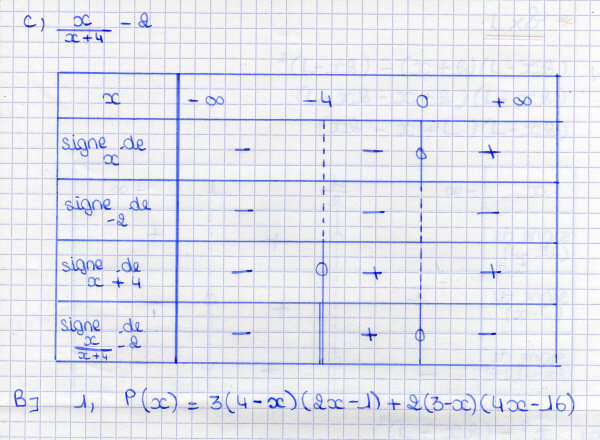 c) x/(x+4) - 2
x -∞ -4 0 +∞
signe de x - - 0 +
signe de -2 - - -
signe de x + 4 - 0 + +
signe de x/(x+4) - 2 - || + 0 -
B] 1, P(x) = 3(4-x)(2x-1)+2(3-x)(4x-16)